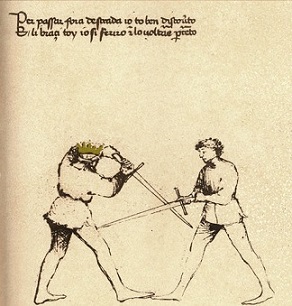 Per passar fora de strada io to ben discoverto
E li braçi toy io si ferirò in lo voltar per certo